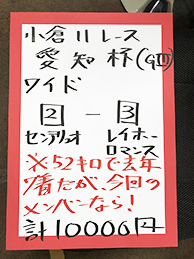 小倉11レース
愛知杯(GⅢ)
ワイド
2-3
センテリュオ レイホー
ロマンス
※52キロで去年
7着だが、今回の
メンバーなら!
計10000円